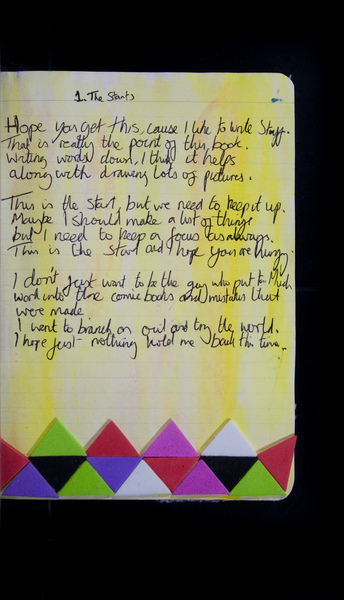 1. The Starts
Hope you get this, cause I like to write Stuff.
That is really the point of this, book.
Writing words down, I think it helps
along with drawing lots of pictures.
This is the start, but we need to keep it up.
Maybe I should make a list of things
but I need to keep a focus as always.
This is the Start and I hope you are
I don't just want to be the guy who put too Much
work into the comic books and mistakes that
were made
I want to branch on out and try the world.
I hope just nothing hold me back this time..